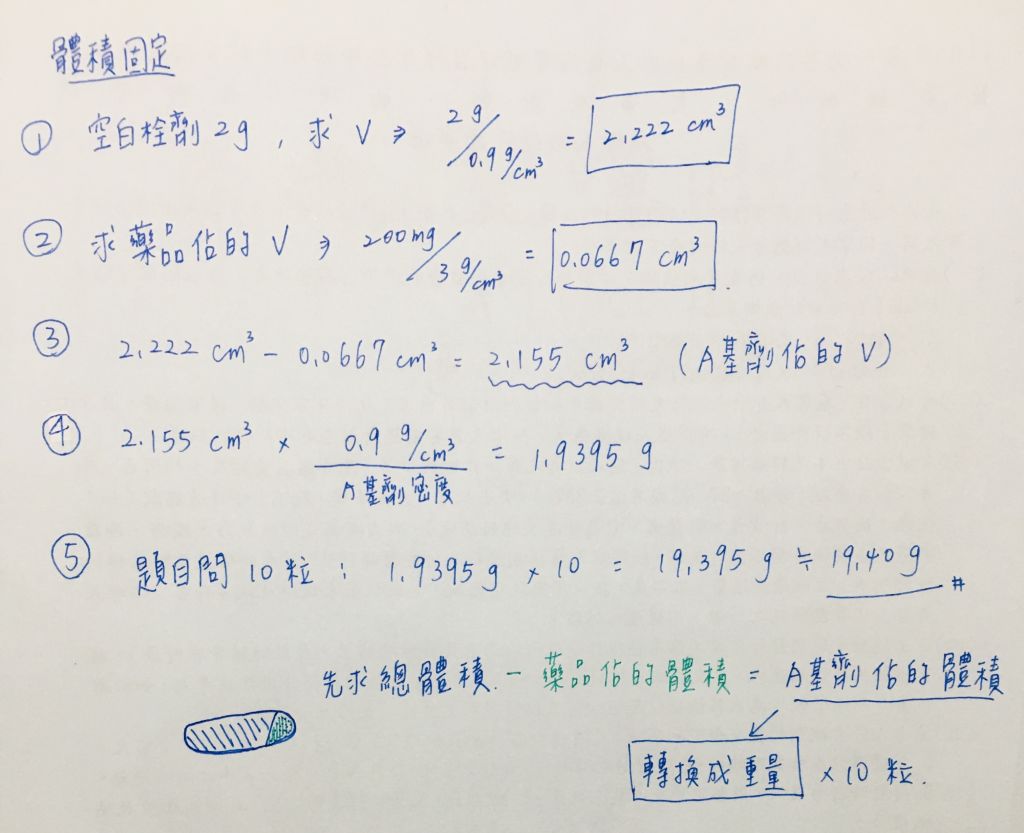 體積固定
① 空白栓劑 2g , 求 V ⇒ 2g / 0.9 g/cm³ = 2.222 cm³
② 求藥品佔的 V ⇒ 200mg / 3 g/cm³ = 0.0667 cm³.
③ 2.222 cm³ - 0.0667 cm³ = 2.155 cm³ (A基劑佔的 V)
④ 2.155 cm³ × 0.9 g/cm³ = 1.9395 g
A基劑密度
⑤ 題目問 10 粒 : 1.9395 g × 10 = 19.395 g ≒ 19.40 g #
先求總體積 - 藥品佔的體積 = A基劑佔的體積
轉換成重量 × 10 粒.